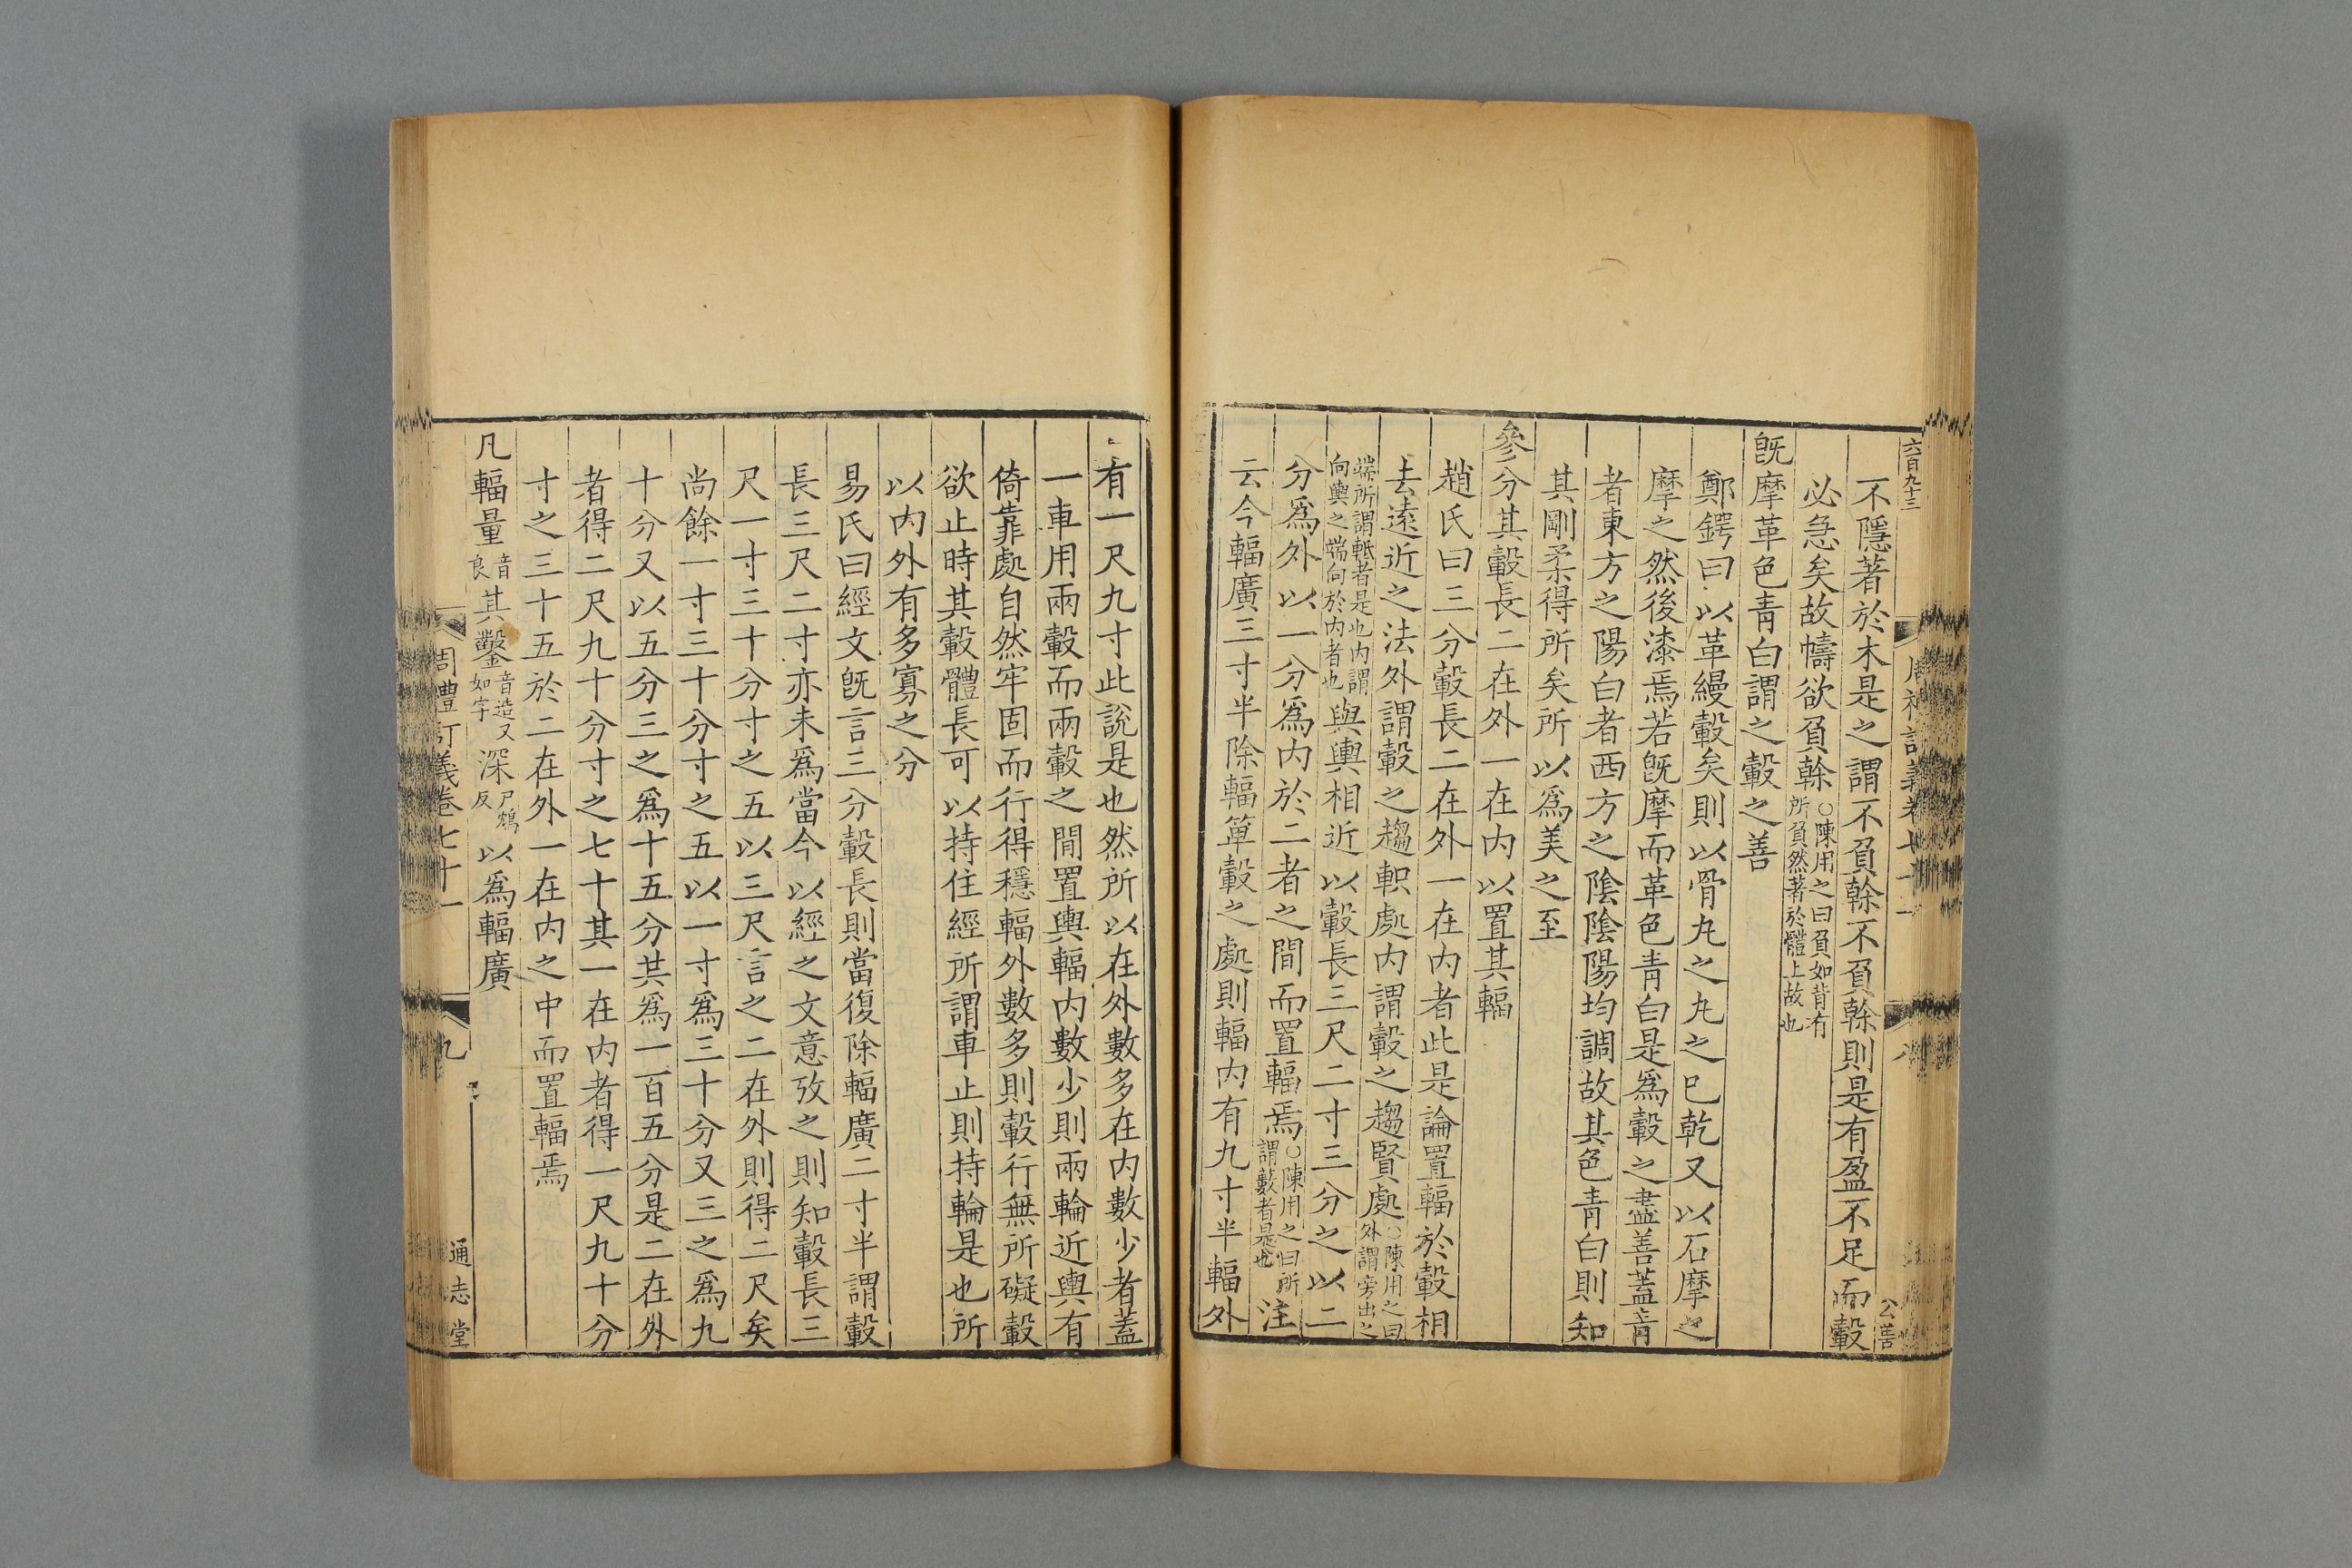 六百九十三
周禮訂義卷七十一
八
公善
不隱著於木是之謂不負榦不負榦則是有盈不足而轂
必急矣故幬欲負榦○陳用之曰負如背有所負然著於體上故也
旣摩革色青白謂之轂之善
鄭鍔曰以革縵轂矣則以骨丸之丸之巳乾又以石摩之
摩之然後漆焉若旣摩而革色青白是爲轂之盡善蓋青
者東方之陽白者西方之陰陰陽均調故其色青白則知
其剛柔得所矣所以爲美之至
參分其轂長二在外一在内以置其輻
趙氏曰三分轂長二在外一在内者此是論置輻於轂相
去遠近之法外謂轂之趨軹處内謂轂之趨賢處○陳用之曰外謂旁出之
端所謂軧者是也内謂向輿之端向於内者也與輿相近以轂長三尺二寸三分之以二
分爲外以一分爲内於二者之間而置輻焉○陳用之曰所謂數者是也注
云今輻廣三寸半除輻箄轂之處則輻内有九寸半輻外
有一尺九寸此說是也然所以在外數多在内數少者蓋
一車用兩轂而兩轂之間置輿輻内數少則兩輪近輿有
倚靠處自然牢固而行得穩輻外數多則轂行無所礙轂
欲止時其轂體長可以持住經所謂車止則持輪是也所
以内外有多寡之分
易氏曰經文旣言三分轂長則當復除輻廣二寸半謂轂
長三尺二寸亦未爲當今以經之文意攷之則知轂長三
尺一寸三十分寸之五以三尺言之二在外則得二尺矣
尚餘一寸三十分寸之五以一寸爲三十分又三之爲九
十分又以五分三之爲十五分其爲一百五分是二在外
者得二尺九十分寸之七十其一在内者得一尺九十分
寸之三十五於二在外一在内之中而置輻焉
凡輻量音良其鑿音造又如字深尸鴆反以爲輻廣
周禮訂義卷七十一
九
通志堂